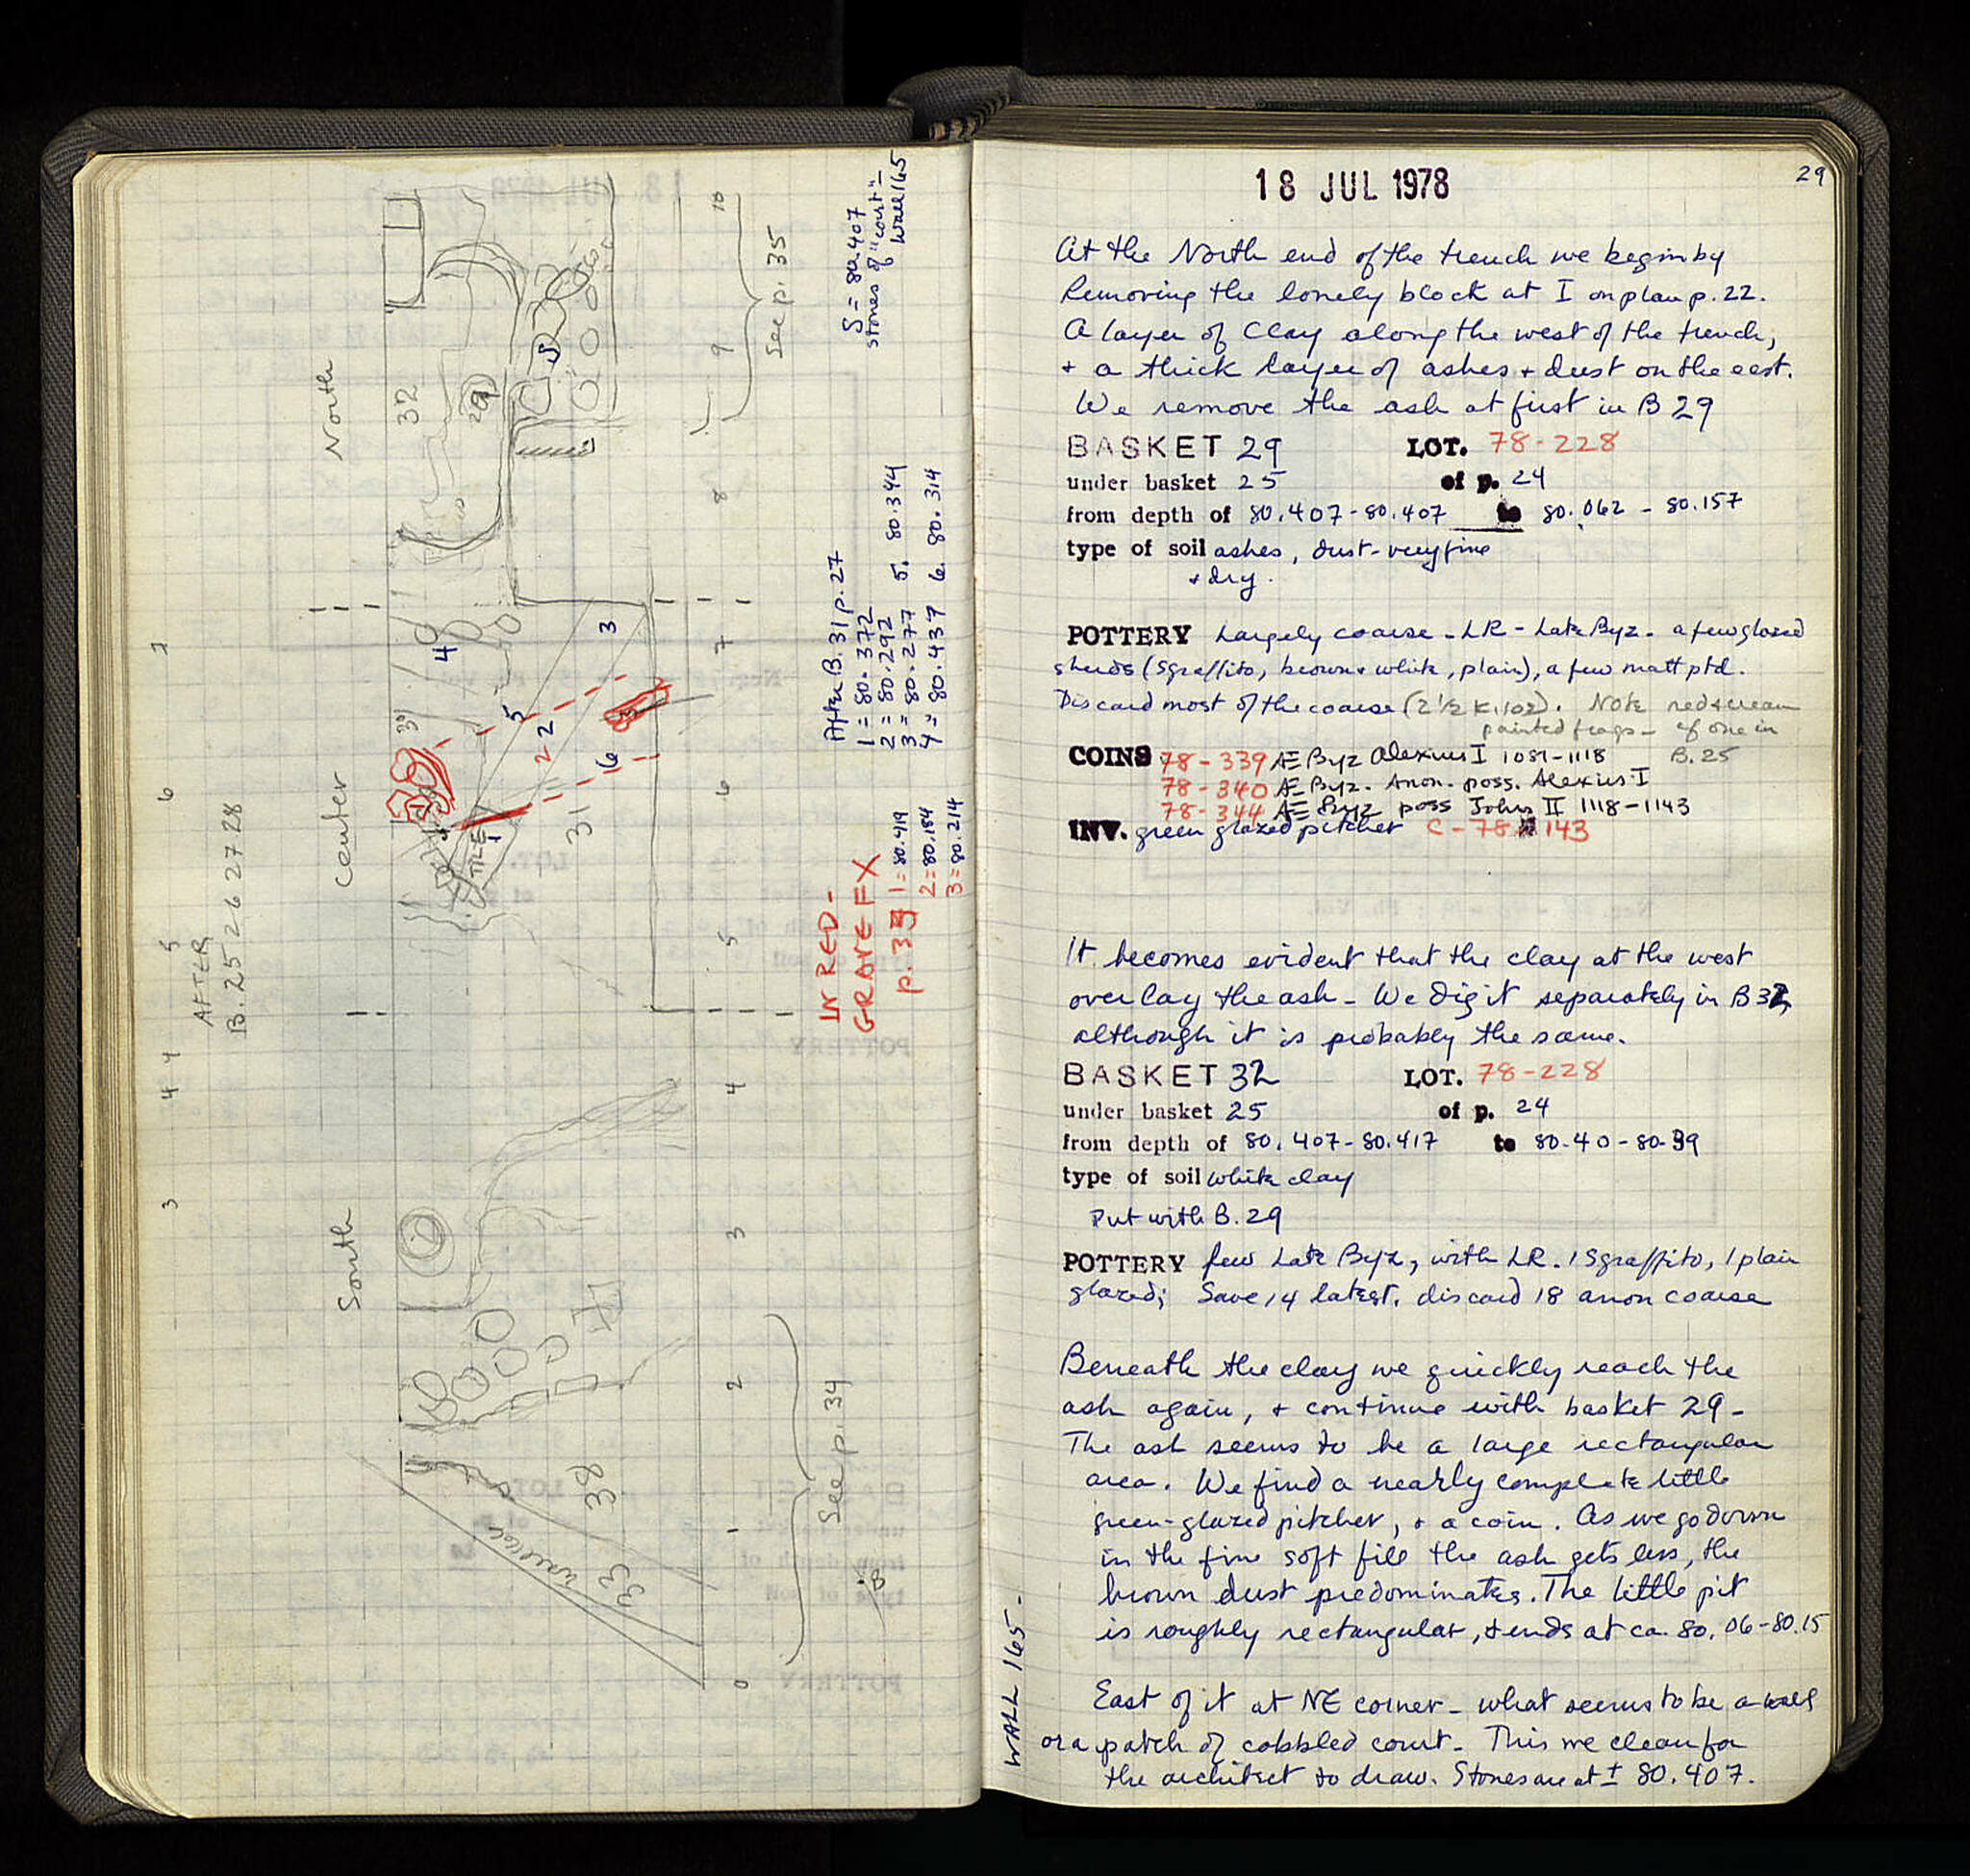 North
Center
South
1
6
5
4
4
3
AFTER
B. 25 26 27 28
32
29
S
10
9
8
7
6
5
4
3
2
1
0
See p. 35
S = 80.407
stones of "court" =
Wall 165
4
3
5
2
2
6
3
1
TILE
31
39
38
33
See p. 34
After B. 31 p. 27
1 = 80.372
2 = 80.292
3 = 80.277
4 = 80.437
5. 80.344
6. 80.314
IN RED -
GRAVE FX
p. 33
1 = 80.419
2 = 80.184
3 = 80.214
18 JUL 1978
29
At the North end of the trench we begin by
Removing the lonely block at I on plan p. 22.
A layer of clay along the west of the trench,
+ a thick layer of ashes + dust on the east.
We remove the ash at first in B 29
BASKET 29 LOT. 78-228
under basket 25 of p. 24
from depth of 80.407 - 80.407 to 80.062 - 80.157
type of soil ashes, dust - very fine
+ dry.
POTTERY Largely coarse - LR - Late Byz - a few glazed
sherds (sgraffito, brown + white, plain), a few matt ptd.
Discard most of the coarse (2 1/2 kilos). Note red + cream
painted frags - cf one in
B. 25
COINS 78-339 Æ Byz Alexius I 1081-1118
78-340 Æ Byz. Anon. poss. Alexius I
78-344 Æ Byz poss John II 1118-1143
INV. green glazed pitcher C-78-143
It becomes evident that the clay at the west
overlay the ash - We dig it separately in B 32,
although it is probably the same.
BASKET 32 LOT. 78-228
under basket 25 of p. 24
from depth of 80.407 - 80.417 to 80.40 - 80.39
type of soil white clay
Put with B. 29
POTTERY few Late Byz, with LR. 1 Sgraffito, 1 plain
glazed; Save 14 latest, discard 18 anon coarse
Beneath the clay we quickly reach the
ash again, + continue with basket 29 -
The ash seems to be a large rectangular
area. We find a nearly complete little
green-glazed pitcher, + a coin. As we go down
in the fine soft fill the ash gets less, the
brown dust predominates. The little pit
is roughly rectangular, + ends at ca. 80.06 - 80.15
WALL 165 -
East of it at NE corner - what seems to be a wall
or a patch of cobbled court - This we clean for
the architect to draw. Stones are at ± 80.407.